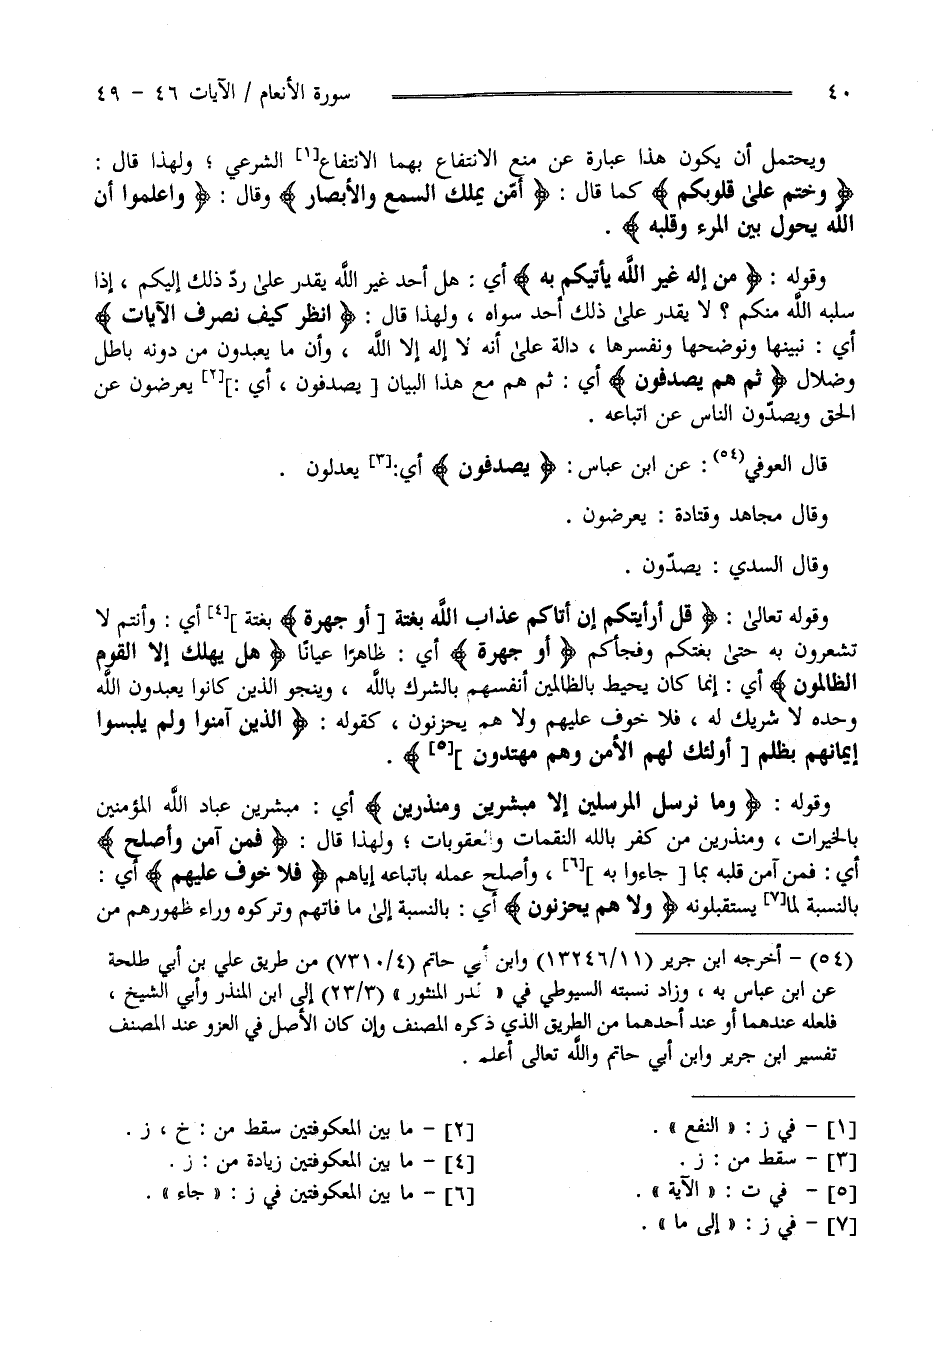 ٤٠ سورة الأنعام / الآيات ٤٦ - ٤٩
ويحتمل أن يكون هذا عبارة عن منع الانتفاع بهما الانتفاع[١] الشرعي ؛ ولهذا قال :
﴿ وختم على قلوبكم ﴾ كما قال : ﴿ أمّن يملك السمع والأبصار ﴾ وقال : ﴿ واعلموا أن
اللَّه يحول بين المرء وقلبه ﴾ .
وقوله : ﴿ من إله غير اللَّه يأتيكم به ﴾ أي : هل أحد غير اللَّه يقدر على ردّ ذلك إليكم ، إذا
سلبه اللَّه منكم ؟ لا يقدر على ذلك أحد سواه ، ولهذا قال : ﴿ انظر كيف نصرف الآيات ﴾
أي : نبينها ونوضحها ونفسرها ، دالة على أنه لا إله إلا اللَّه ، وأن ما يعبدون من دونه باطل
وضلال ﴿ ثم هم يصدفون ﴾ أي : ثم هم مع هذا البيان [ يصدفون ، أي :][٢] يعرضون عن
الحق ويصدّون الناس عن اتباعه .
قال العوفي(٥٤) : عن ابن عباس : ﴿ يصدفون ﴾ أي:[٣] يعدلون .
وقال مجاهد وقتادة : يعرضون .
وقال السدي : يصدّون .
وقوله تعالى : ﴿ قل أرأيتكم إن أتاكم عذاب اللَّه بغتة [ أو جهرة ﴾ بغتة ][٤] أي : وأنتم لا
تشعرون به حتى بغتكم وفجأكم ﴿ أو جهرة ﴾ أي : ظاهرًا عيانًا ﴿ هل يهلك إلا القوم
الظالمون ﴾ أي : إنما كان يحيط بالظالمين أنفسهم بالشرك باللَّه ، وينجو الذين كانوا يعبدون اللَّه
وحده لا شريك له ، فلا خوف عليهم ولا هم يحزنون ، كقوله : ﴿ الذين آمنوا ولم يلبسوا
إيمانهم بظلم [ أولئك لهم الأمن وهم مهتدون ][٥] ﴾ .
وقوله : ﴿ وما نرسل المرسلين إلا مبشرين ومنذرين ﴾ أي : مبشرين عباد اللَّه المؤمنين
بالخيرات ، ومنذرين من كفر بالله النقمات والعقوبات ؛ ولهذا قال : ﴿ فمن آمن وأصلح ﴾
أي : فمن آمن قلبه بما [ جاءوا به ][٦] ، وأصلح عمله باتباعه إياهم ﴿ فلا خوف عليهم ﴾ أي :
بالنسبة لما[٧] يستقبلونه ﴿ ولا هم يحزنون ﴾ أي : بالنسبة إلى ما فاتهم وتركوه وراء ظهورهم من
(٥٤) - أخرجه ابن جرير (١٣٢٤٦/١١) وابن أبي حاتم (٧٣١٠/٤) من طريق علي بن أبي طلحة
عن ابن عباس به ، وزاد نسبته السيوطي في « الدر المنثور » (٢٣/٣) إلى ابن المنذر وأبي الشيخ ،
فلعله عندهما أو عند أحدهما من الطريق الذي ذكره المصنف وإن كان الأصل في العزو عند المصنف
تفسير ابن جرير وابن أبي حاتم واللَّه تعالى أعلم .
[١] - في ز : « النفع » . [٢] - ما بين المعكوفتين سقط من : خ ، ز .
[٣] - سقط من : ز . [٤] - ما بين المعكوفتين زيادة من : ز .
[٥] - في ت : « الآية » . [٦] - ما بين المعكوفتين في ز : « جاء » .
[٧] - في ز : « إلى ما » .